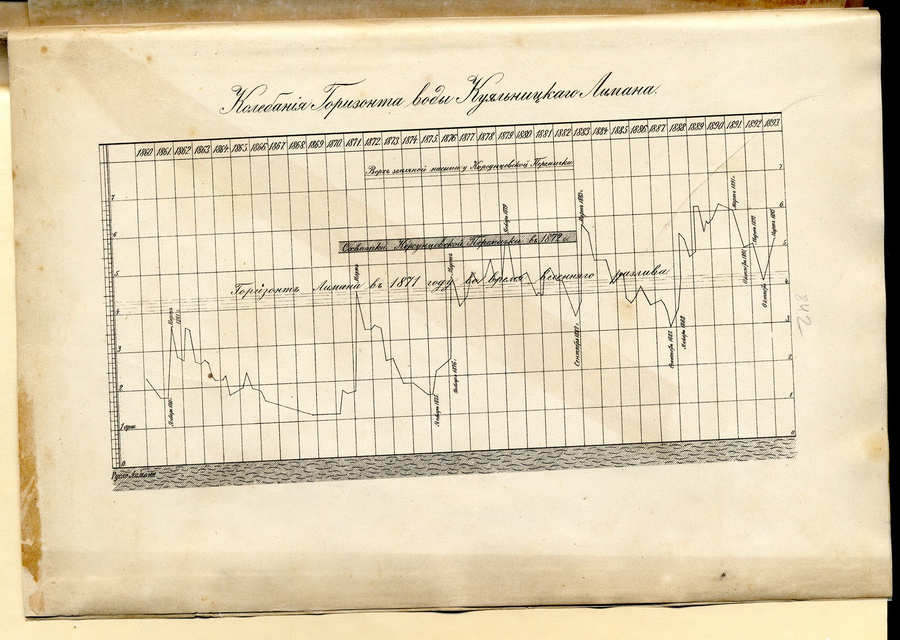 Колебанія Горизонта воды Куяльницкаго Лимана.
1860. 1861. 1862. 1863. 1864. 1865. 1866. 1867. 1868. 1869. 1870. 1871. 1872. 1873. 1874. 1875. 1876. 1877. 1878. 1879. 1880. 1881. 1882. 1883. 1884. 1885. 1886. 1887. 1888. 1889. 1890. 1891. 1892. 1893.
Верхъ земляной насыпи у Корсунцовской Пересыпки
7
7
6
6
Январь 1879
Мартъ 1883 г.
Мартъ 1891 г.
Корсунцовской Пересыпки въ 1872 г.
5
5
Мартъ
Мартъ
Мартъ 1892
Мартъ 1893
Горизонтъ Лимана въ 1871 году во время весенняго разлива
4
4
Мартъ 1861 г.
Октябрь 1891
Октябрь
3
3
Сентябрь 1882 г.
Январь 1888
2
2
Январь 1876 г.
1
1
Январь 1861
Январь 1875
0
0
Русло Лимана
842